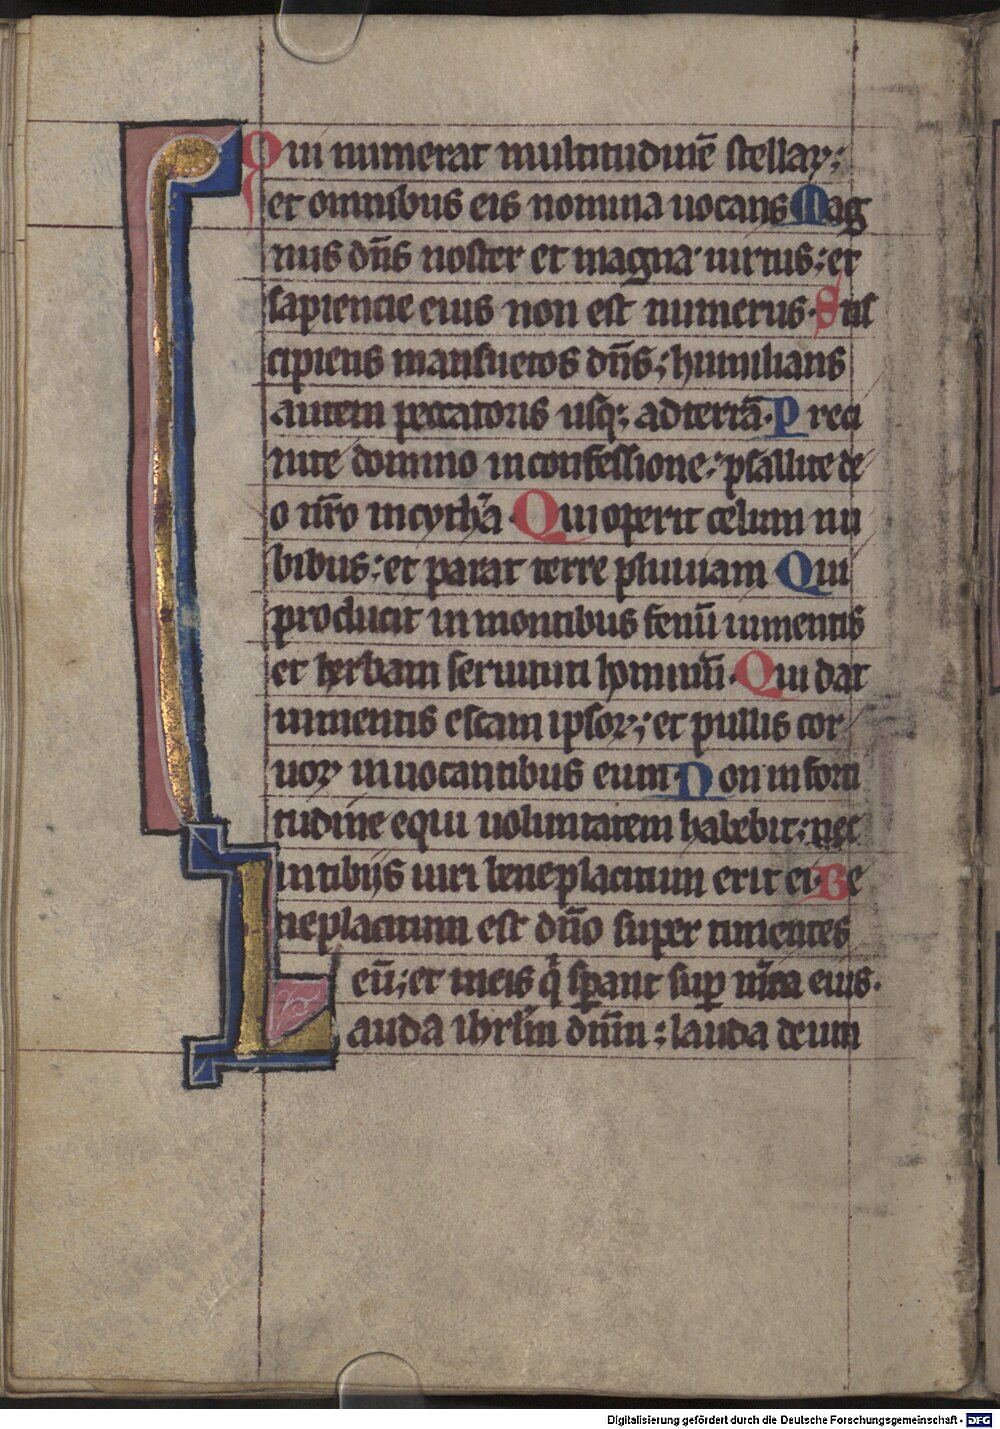 Qui numerat multitudinē stellaꝝ;
et omnibus eis nomina uocans Mag
nus dn̄s noster et magna uirtus; et
sapiencie eius non est numerus. Sus
cipiens mansuetos dn̄s; humilians
autem peccatoris usq; ad terrā. Preci
nite domino in confessione; psallite de
o nr̄o in cythͣa. Qui operit celum nu
bibus; et parat terre pluuiam Qui
producit in montibus fenū iumentis
et herbam seruituti hominū. Qui dat
iumentis escam ipsoꝝ; et pullis cor
uoꝝ inuocantibus eum Non in forti
tudine equi uoluntatem habebit; nec
in tibijs uiri beneplacitum erit ei. Be
neplacitum est dn̄o super timentes
eū; et in eis q̇ sꝑant suꝑ mīa eius.
Lauda ihrlm̄ dn̄m; lauda deum
Digitalisierung gefördert durch die Deutsche Forschungsgemeinschaft - DFG